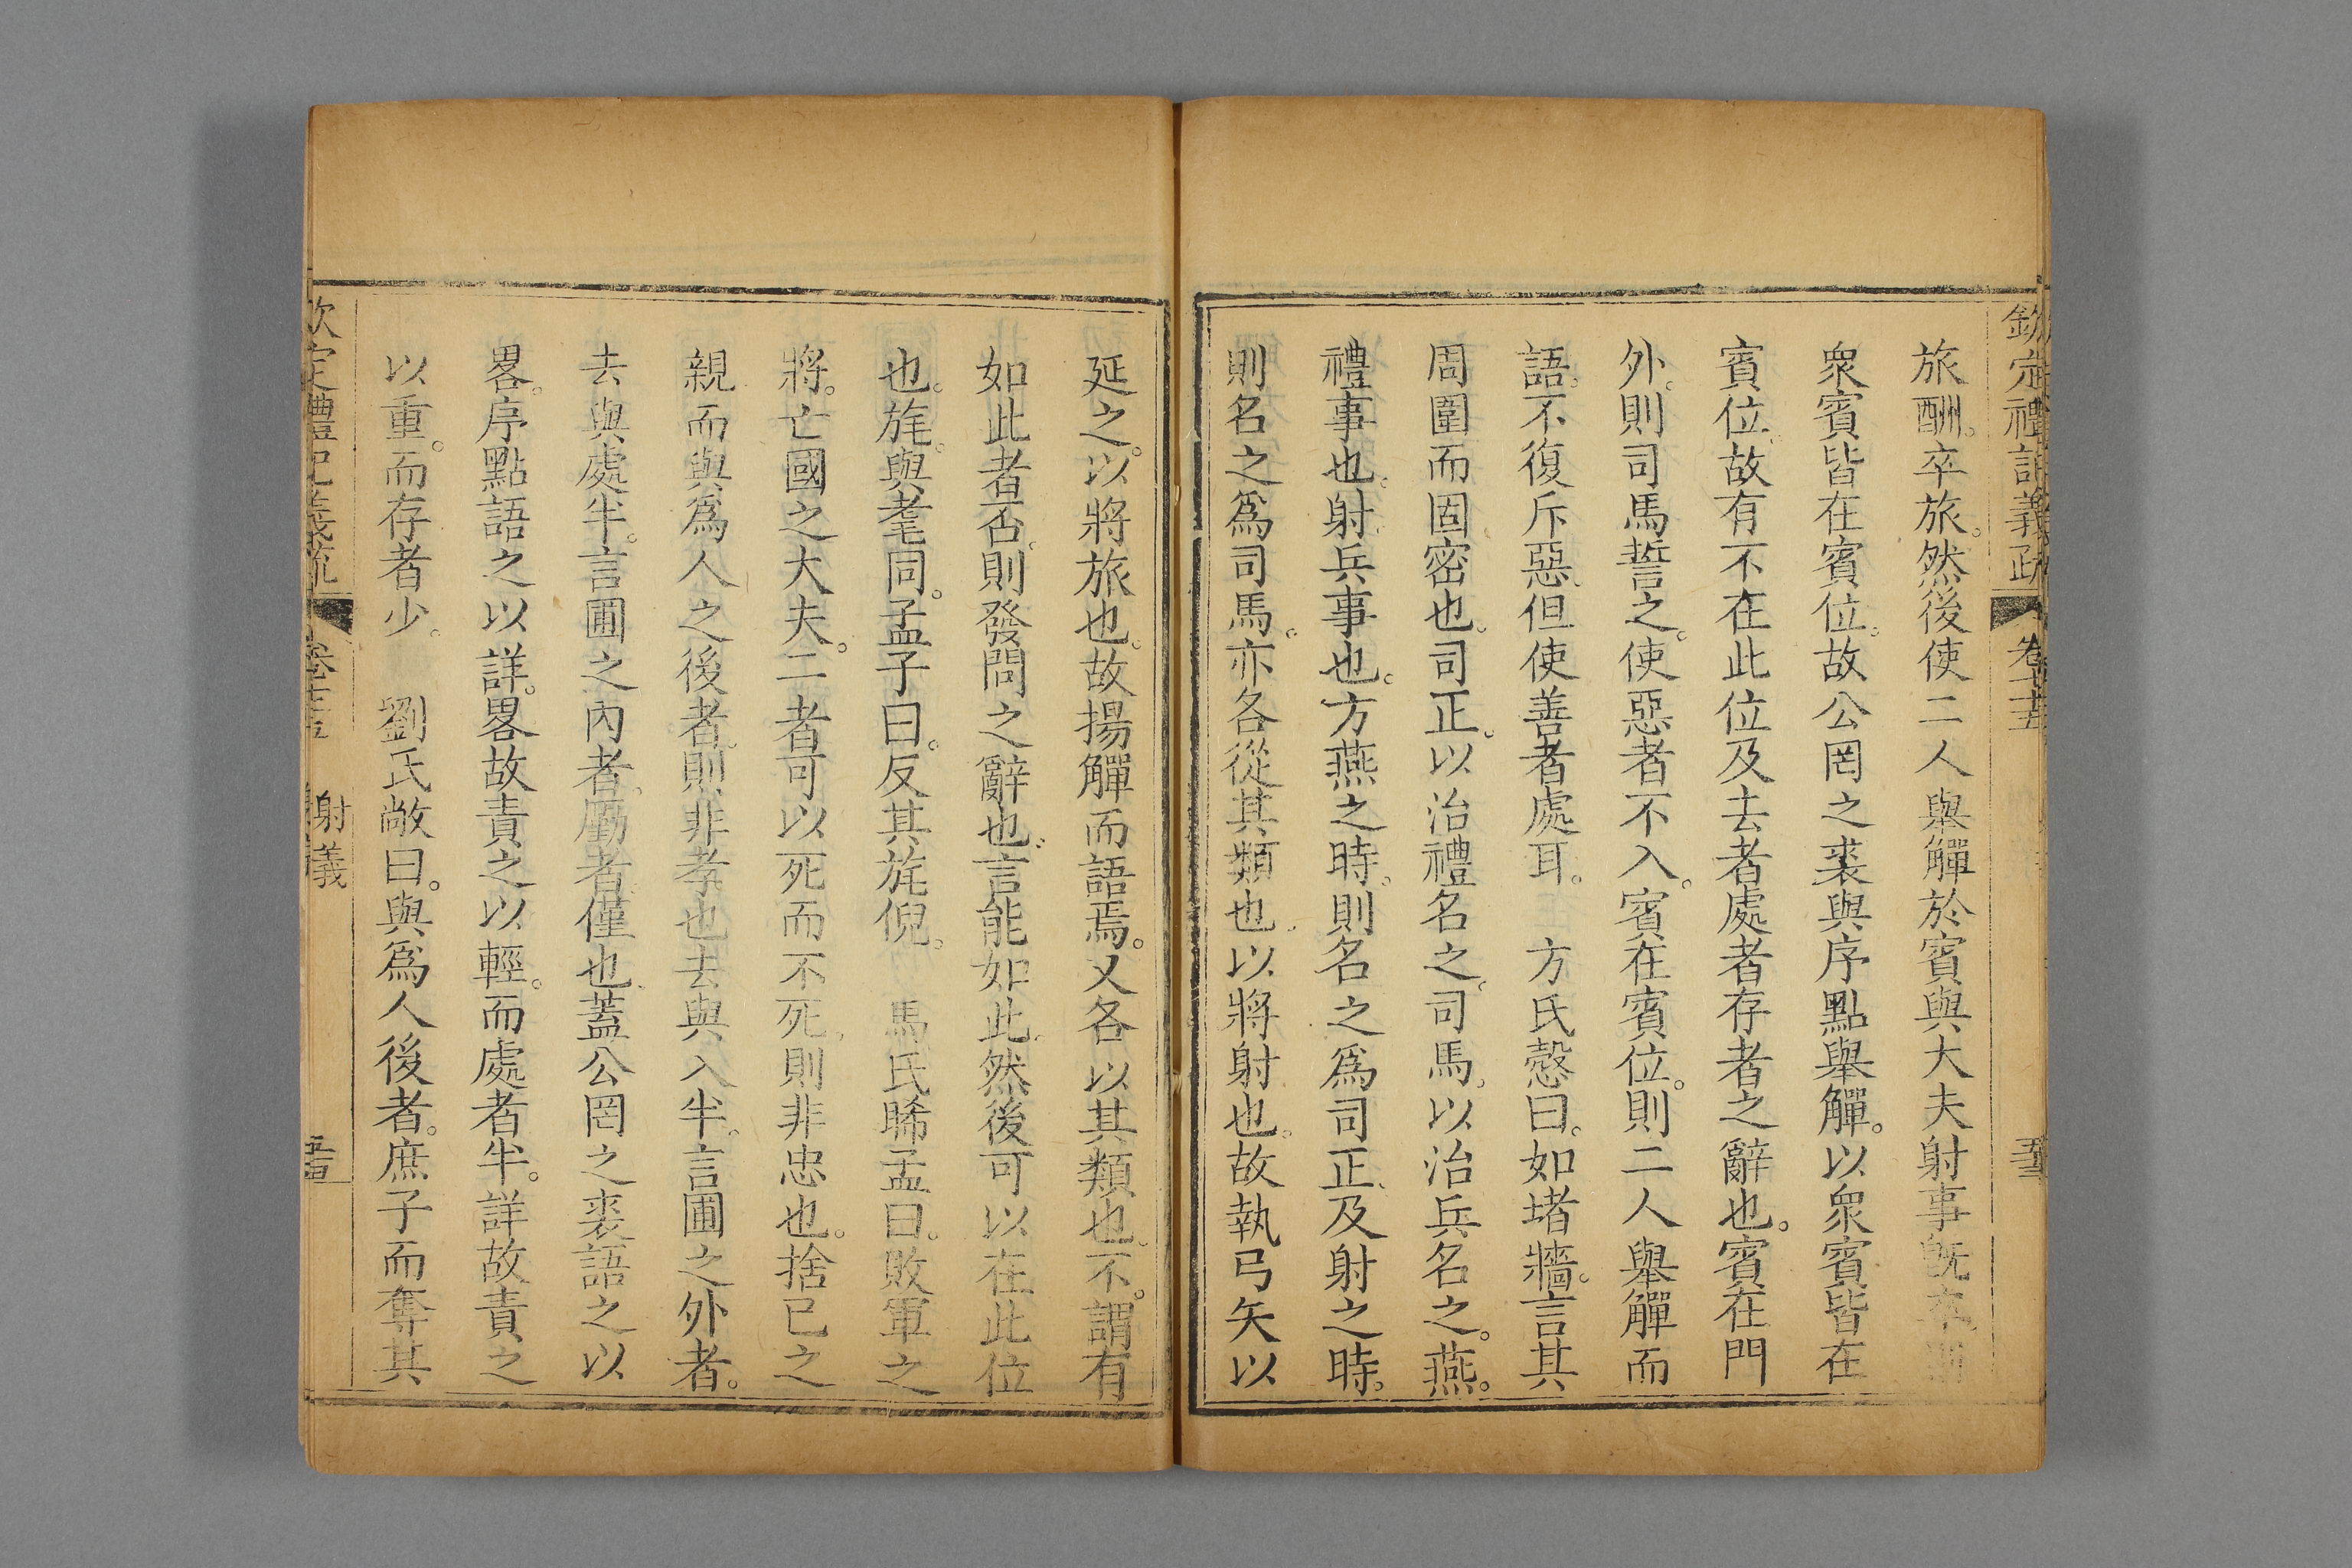 欽定禮記義疏 卷七十五
旅酬。卒旅。然後使二人舉觶於賓與大夫射事旣卒
衆賓皆在賓位。故公罔之裘與序點舉觶。以衆賓皆在
賓位。故有不在此位及去者處者存者之辭也。賓在門
外。則司馬誓之。使惡者不入。賓在賓位。則二人舉觶而
語。不復斥惡。但使善者處耳。 方氏慤曰。如堵牆。言其
周圍而固密也。司正。以治禮名之。司馬。以治兵名之。燕。
禮事也。射。兵事也。方燕之時。則名之爲司正。及射之時。
則名之爲司馬。亦各從其類也。以將射也。故執弓矢以
延之。以將旅也。故揚觶而語焉。又各以其類也。不。謂有
如此者否。則發問之辭也。言能如此。然後可以在此位
也。旄。與耄同。孟子曰。反其旄倪。 馬氏晞孟曰。敗軍之
將。亡國之大夫。二者可以死而不死。則非忠也。捨已之
親而與爲人之後者。則非孝也去與入半。言圃之外者。
去與處半。言圃之內者。勴者。僅也。蓋公罔之裘語之以
畧。序點語之以詳。畧故責之以輕。而處者半。詳故責之
以重。而存者少。 劉氏敞曰。與爲人後者。庶子而奪其
欽定禮記義疏 卷七十五 射義